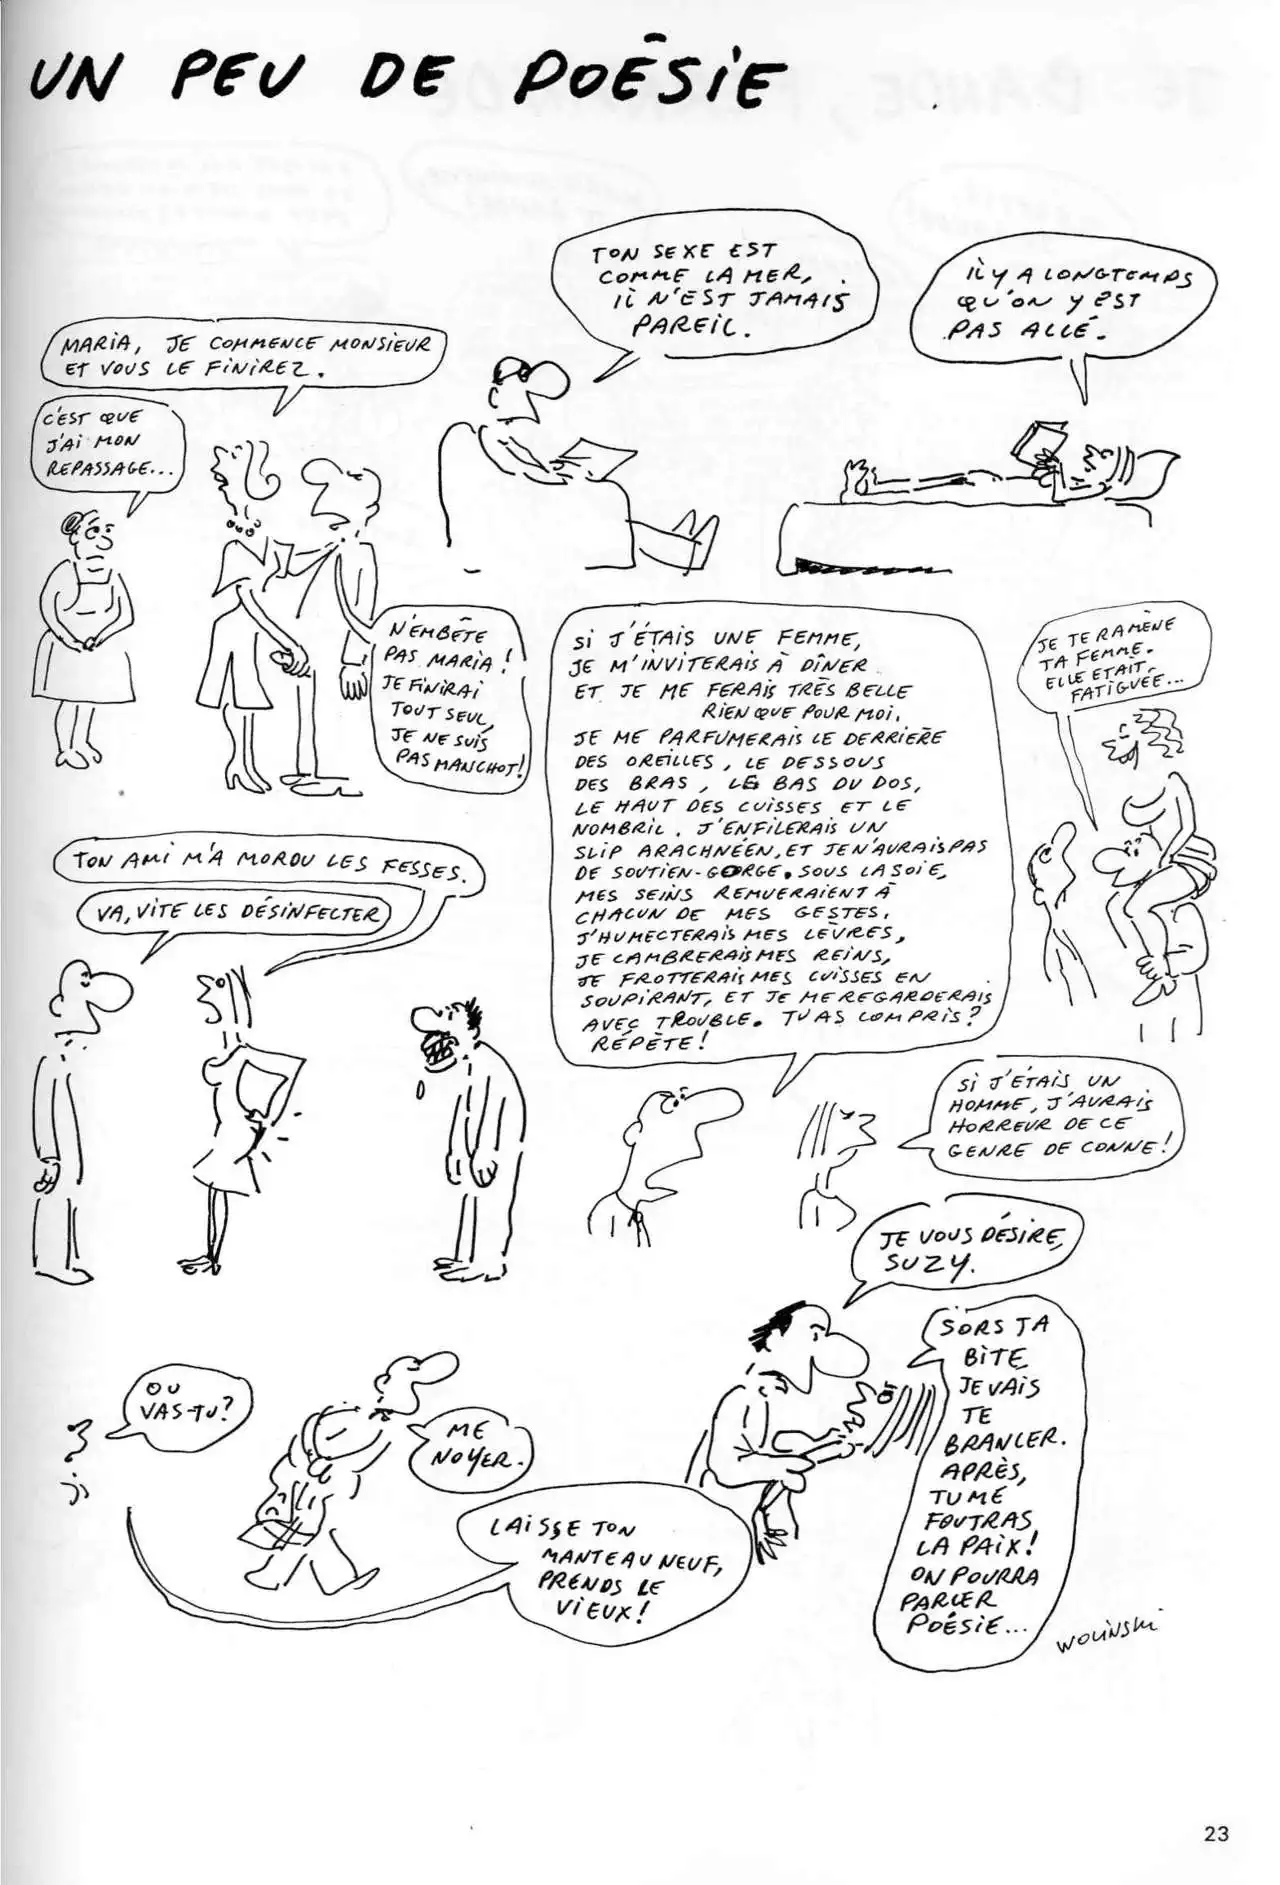 UN PEU DE POÉSIE
MARIA, JE COMMENCE MONSIEUR
ET VOUS LE FINIREZ.
C'EST QUE
J'AI MON
REPASSAGE...
N'EMBÊTE
PAS MARIA!
JE FINIRAI
TOUT SEUL,
JE NE SUIS
PAS MANCHOT!
TON SEXE EST
COMME LA MER,
IL N'EST JAMAIS
PAREIL.
IL Y A LONGTEMPS
QU'ON Y EST
PAS ALLÉ.
SI J'ÉTAIS UNE FEMME,
JE M'INVITERAIS À DÎNER
ET JE ME FERAIS TRÈS BELLE
RIEN QUE POUR MOI.
JE ME PARFUMERAIS LE DERRIÈRE
DES OREILLES, LE DESSOUS
DES BRAS, LE BAS DU DOS,
LE HAUT DES CUISSES ET LE
NOMBRIL. J'ENFILERAIS UN
SLIP ARACHNÉEN, ET JE N'AURAIS PAS
DE SOUTIEN-GORGE. SOUS LA SOIE,
MES SEINS REMUERAIENT À
CHACUN DE MES GESTES.
J'HUMECTERAIS MES LÈVRES,
JE CAMBRERAIS MES REINS,
JE FROTTERAIS MES CUISSES EN
SOUPIRANT, ET JE ME REGARDERAIS
AVEC TROUBLE. TU AS COMPRIS?
RÉPÈTE!
SI J'ÉTAIS UN
HOMME, J'AURAIS
HORREUR DE CE
GENRE DE CONNE!
JE TE RAMÈNE
TA FEMME.
ELLE ETAIT
FATIGUÉE...
TON AMI M'A MORDU LES FESSES.
VA, VITE LES DÉSINFECTER
OU
VAS-TU?
ME
NOYER.
LAISSE TON
MANTEAU NEUF,
PRENDS LE
VIEUX!
JE VOUS DÉSIRE,
SUZY.
SORS TA
BITE
JE VAIS
TE
BRANLER.
APRÈS,
TU ME
FOUTRAS
LA PAIX!
ON POURRA
PARLER
POÉSIE...
WOLINSKI
23